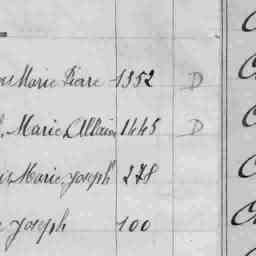 Marie Pierre 1352 D
Marie, Allain 1445 D
Marie, Joseph 278
Joseph 100